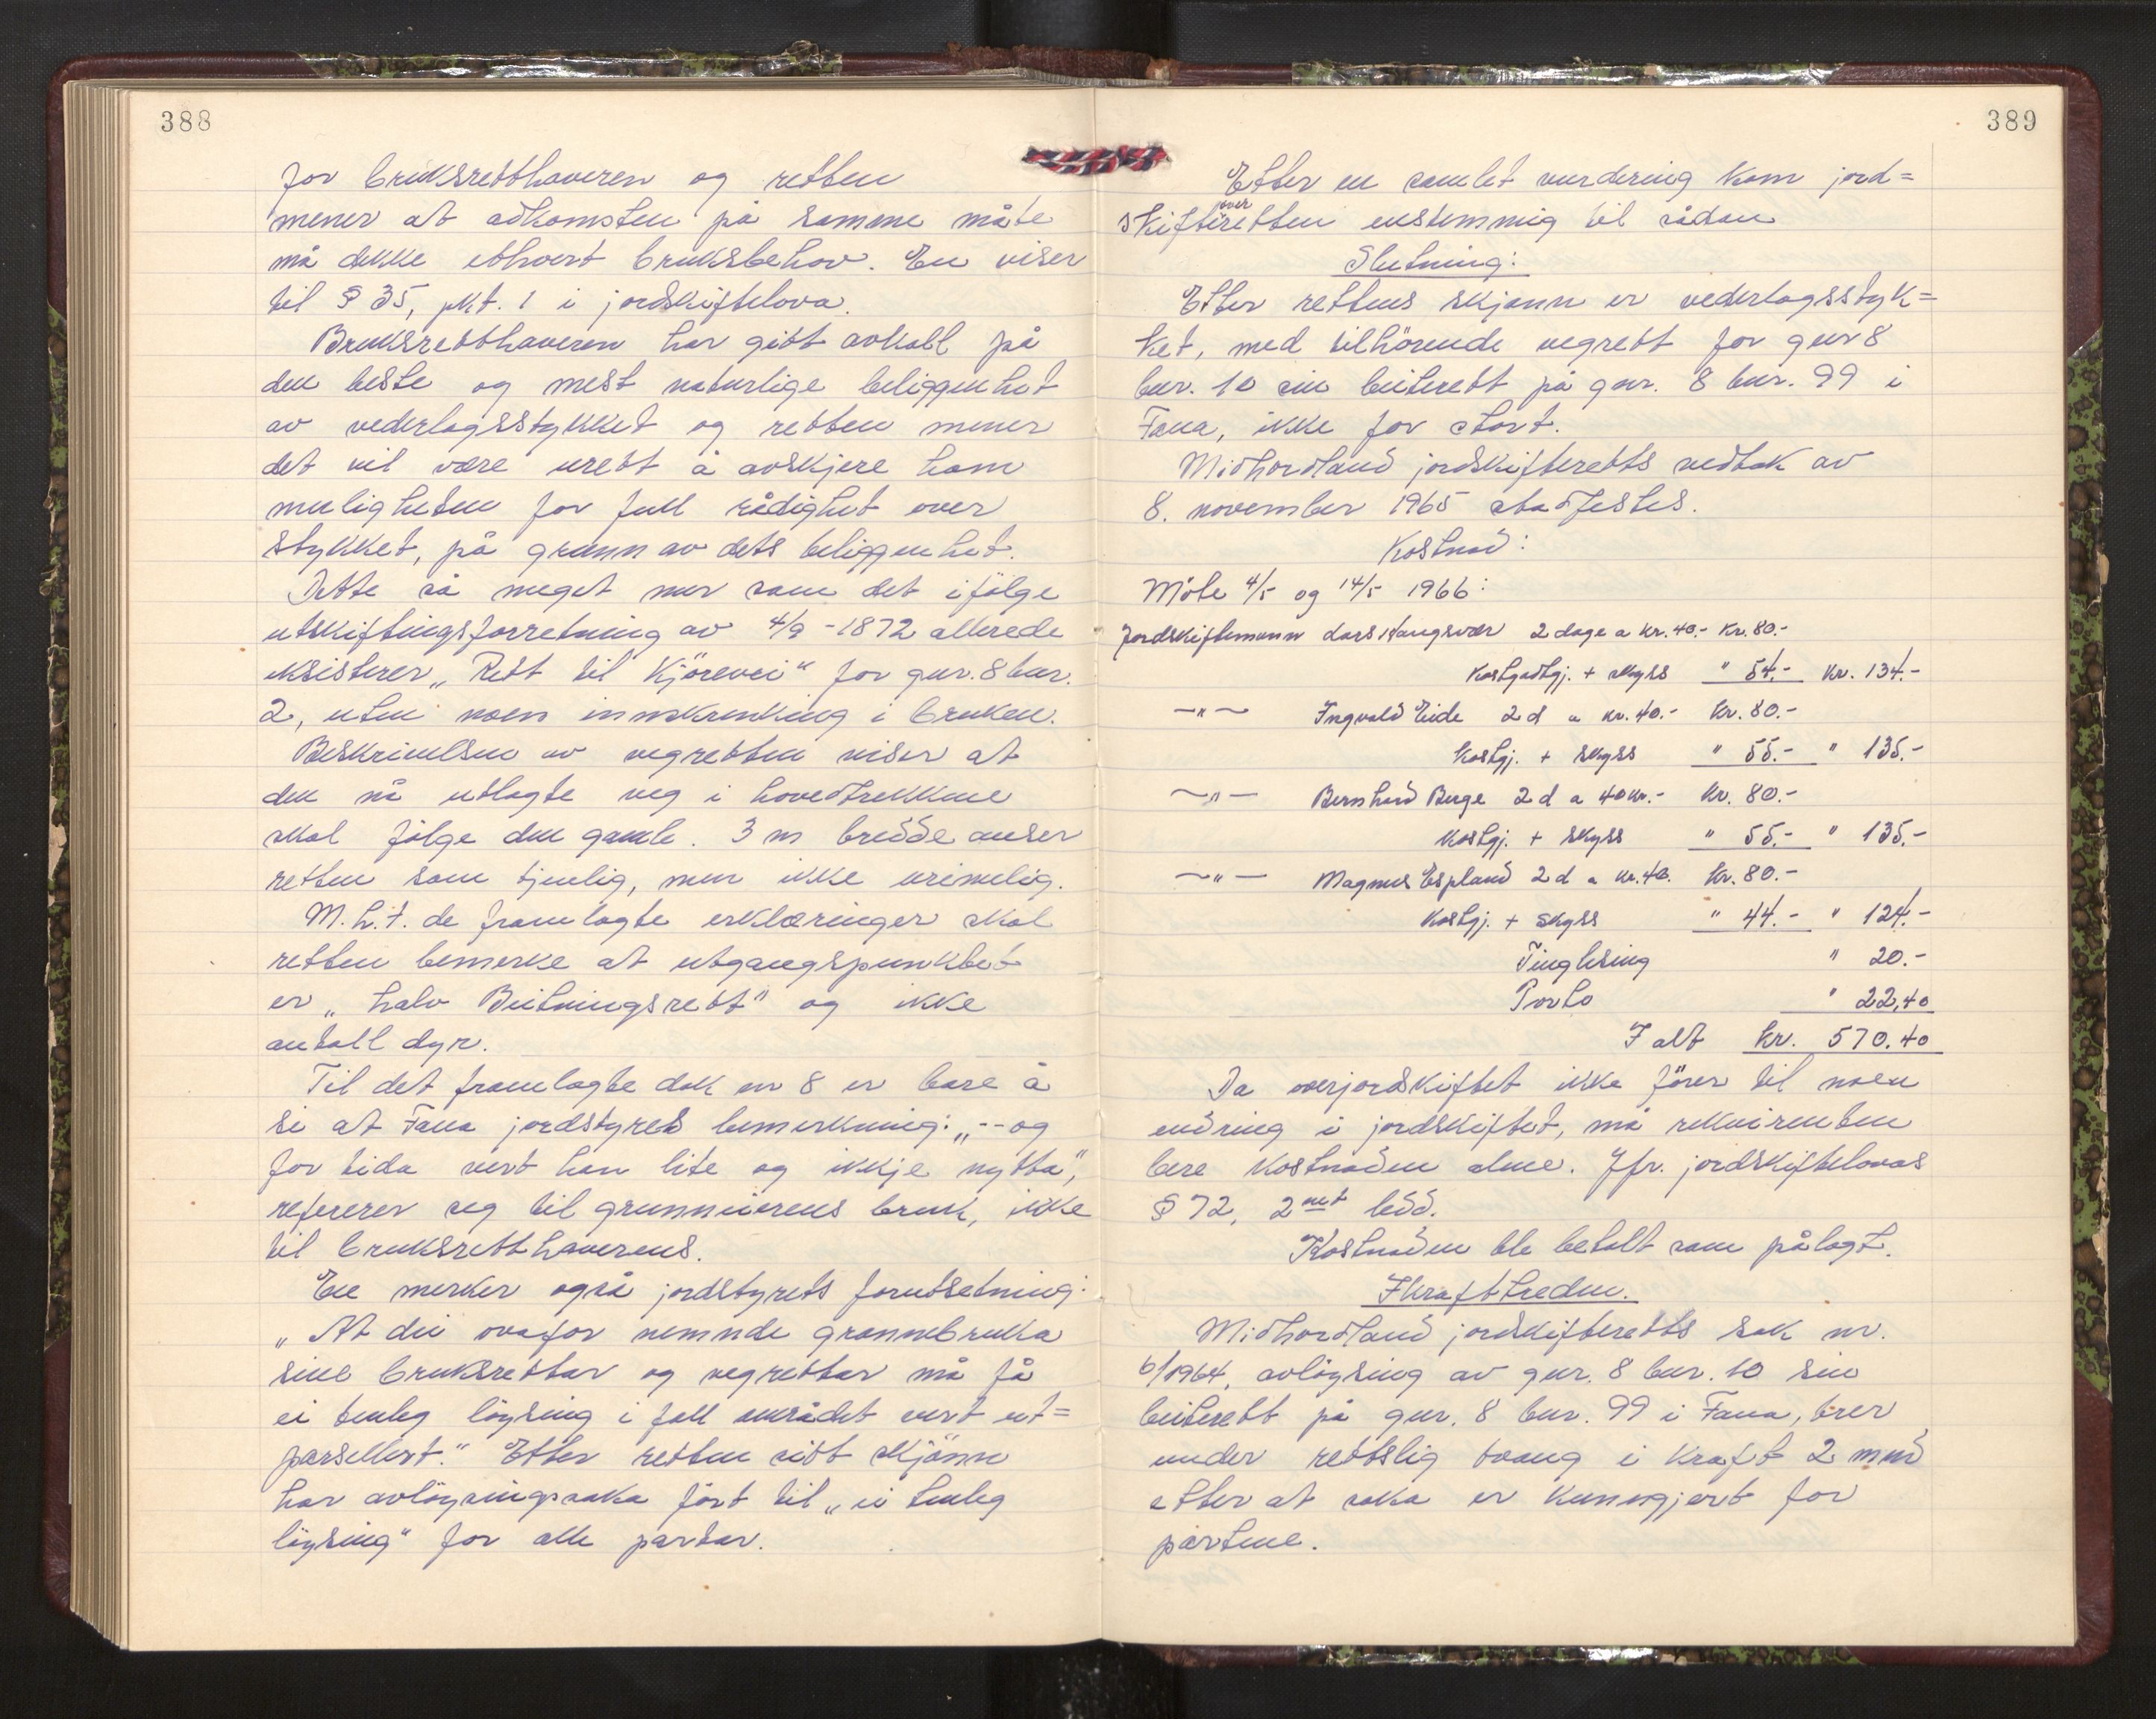 388
for bruksretthaveren og retten
mener at adkomsten på samme måte
må dekke ethvert bruksbehov. En viser
til § 35, pkt. 1 i jordskiftelova.
Bruksretthaveren har gitt avkall på
den beste og mest naturlige beliggenhet
av vederlagsstykket og retten mener
det vil være urett å avskjere ham
muligheten for full rådighet over
stykket, på grunn av dets beliggenhet.
Dette så meget mer som det ifølge
utskiftingsforretning av 4/9 - 1872 allerede
eksisterer „Rett til Kjörevei" for gnr. 8 bnr.
2, uten noen innskrenking i bruken.
Beskrivelsen av vegretten viser at
den nå utlagte veg i hovedtrekkene
skal fölge den gamle. 3 m bredde anser
retten som tjenlig, men ikke urimelig.
M.h.t. de framlagte erklæringer skal
retten bemerke at utgangspunktet
er „halv Beitningsrett" og ikke
antall dyr.
Til det framlagte dok nr 8 er bare å
si at Fana jordstyres bemerkning: „-- og
for tida vert han lite og ikkje nytta",
referer seg til grunneierens bruk, ikke
til bruksretthaverens.
En merker også jordstyrets forutsetning:
„At dei ovafor nemnde grannebruka
sine bruksrettar og vegrettar må få
ei tenleg löysing i fall området vert ut=
parsellert." Etter retten sitt skjönn
har avlöysingssaka fört til „ei tenleg
löysing" for alle partar.
389
Etter en samlet vurdering kom jord=
skifteoverretten enstemmig til sådan
Slutning:
Etter rettens skjønn er vederlagsstyk=
ket, med tilhörende vegrett for gnr 8
bnr. 10 sin beiterett på gnr. 8 bnr. 99 i
Fana, ikke for stort.
Midhordland jordskifteretts vedtak av
8. november 1965 stadfestes.
Kostnad:
Möte 4/5 og 14/5 1966:
Jordskiftemann Lars Haugsvær 2 dage a kr. 40.- Kr. 80.-
Kostgodtgj. + skyss " 54.- Kr. 134.-
—"— Ingvald Eide 2 d a kr. 40.- Kr. 80.-
Kostgj. + skyss " 55.- " 135.-
—"— Bernhard Berge 2 d a 40 kr.- Kr. 80.-
Kostgj. + skyss " 55.- " 135.-
—"— Magnus Espland 2 d a kr. 40. Kr. 80.-
Kostgj. + skyss " 44.- " 124.-
Tinglesing " 20.-
Porto " 22,40
I alt kr. 570.40
Da overjordskiftet ikke förer til noen
endring i jordskiftet, må rekvirenten
bere kostnaden alene. Jfr. jordskiftelovas
§ 72, 2net ledd.
Kostnaden ble betalt som pålagt.
Ikrafttreden.
Midhordland jordskifteretts sak nr.
6/1964, avlöysing av gnr. 8 bnr. 10 sin
beiterett på gnr. 8 bnr. 99 i Fana, trer
under rettslig tvang i kraft 2 mnd
etter at saka er kunngjort for
partene.